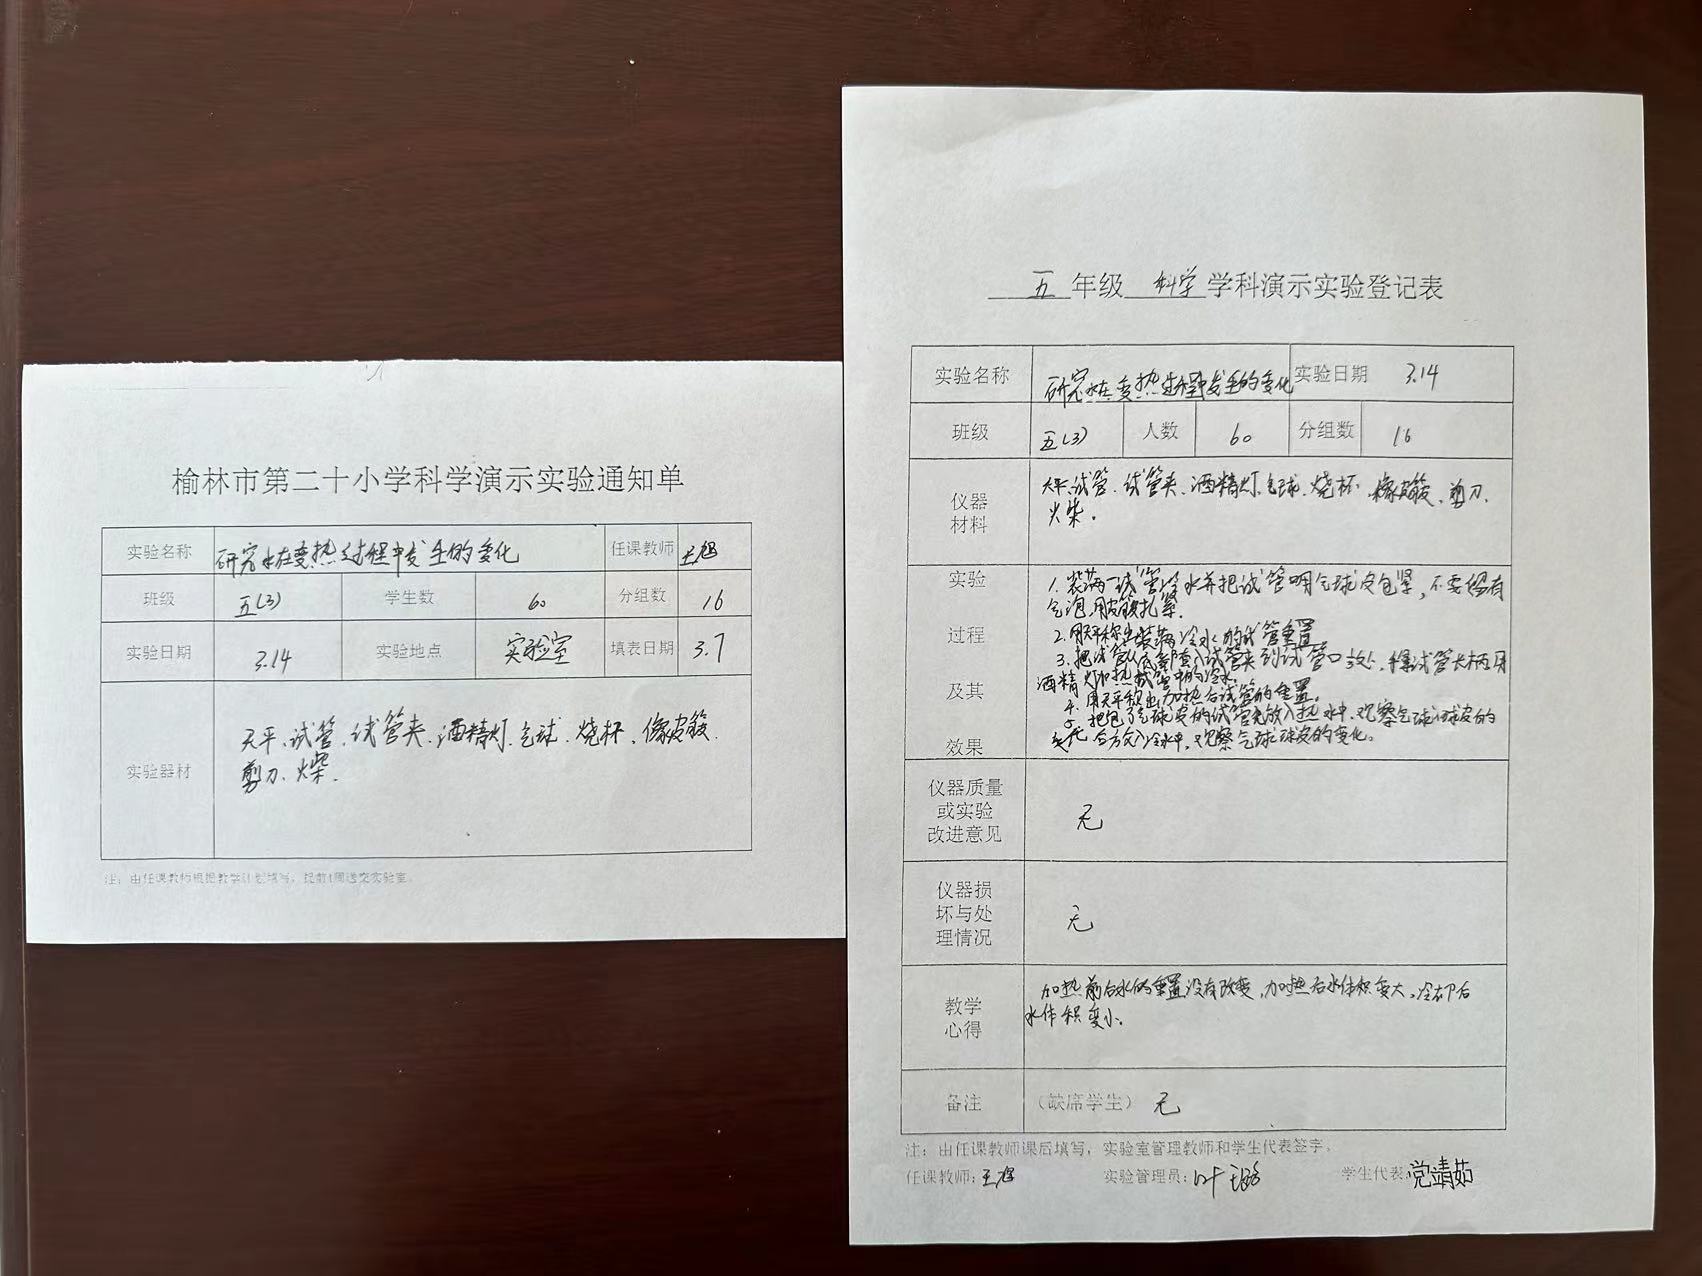 榆林市第二十小学科学演示实验通知单
实验名称 研究水在变热过程中发生的变化 任课教师 王旭
班级 五(3) 学生数 60 分组数 16
实验日期 3.14 实验地点 实验室 填表日期 3.7
实验器材
天平、试管、试管夹、酒精灯、气球、烧杯、橡皮筋、
剪刀、火柴.
注：由任课教师根据教学计划填写，提前1周送交实验室。
五 年级 科学 学科演示实验登记表
实验名称 研究水在变热过程中发生的变化 实验日期 3.14
班级 五(3) 人数 60 分组数 16
仪器
材料
天平、试管、试管夹、酒精灯、气球、烧杯、橡皮筋、剪刀、
火柴。
实验
过程
及其
效果
1.装满一试管冷水并把试管用气球皮包紧，不要留有
气泡，用皮筋扎紧.
2.用天平称出装满冷水的试管重量
3.把试管从底部套入试管夹到试管口 处，手 试管夹长柄用
酒精灯加热试管中的冷水.
4.用天平称出加热后试管的重量.
5.把包了气球皮的试管先放入热水中，观察气球 球皮的
变化 后方 入冷水中，观察气球球皮的变化。
仪器质量
或实验
改进意见
无
仪器损
坏与处
理情况
无
教学
心得
加热前后水的重量没有改变，加热后水体积变大，冷却后
水体积变小.
备注 （缺席学生） 无
注：由任课教师课后填写，实验室管理教师和学生代表签字。
任课教师：王旭 实验管理员：叶璐 学生代表：党靖茹